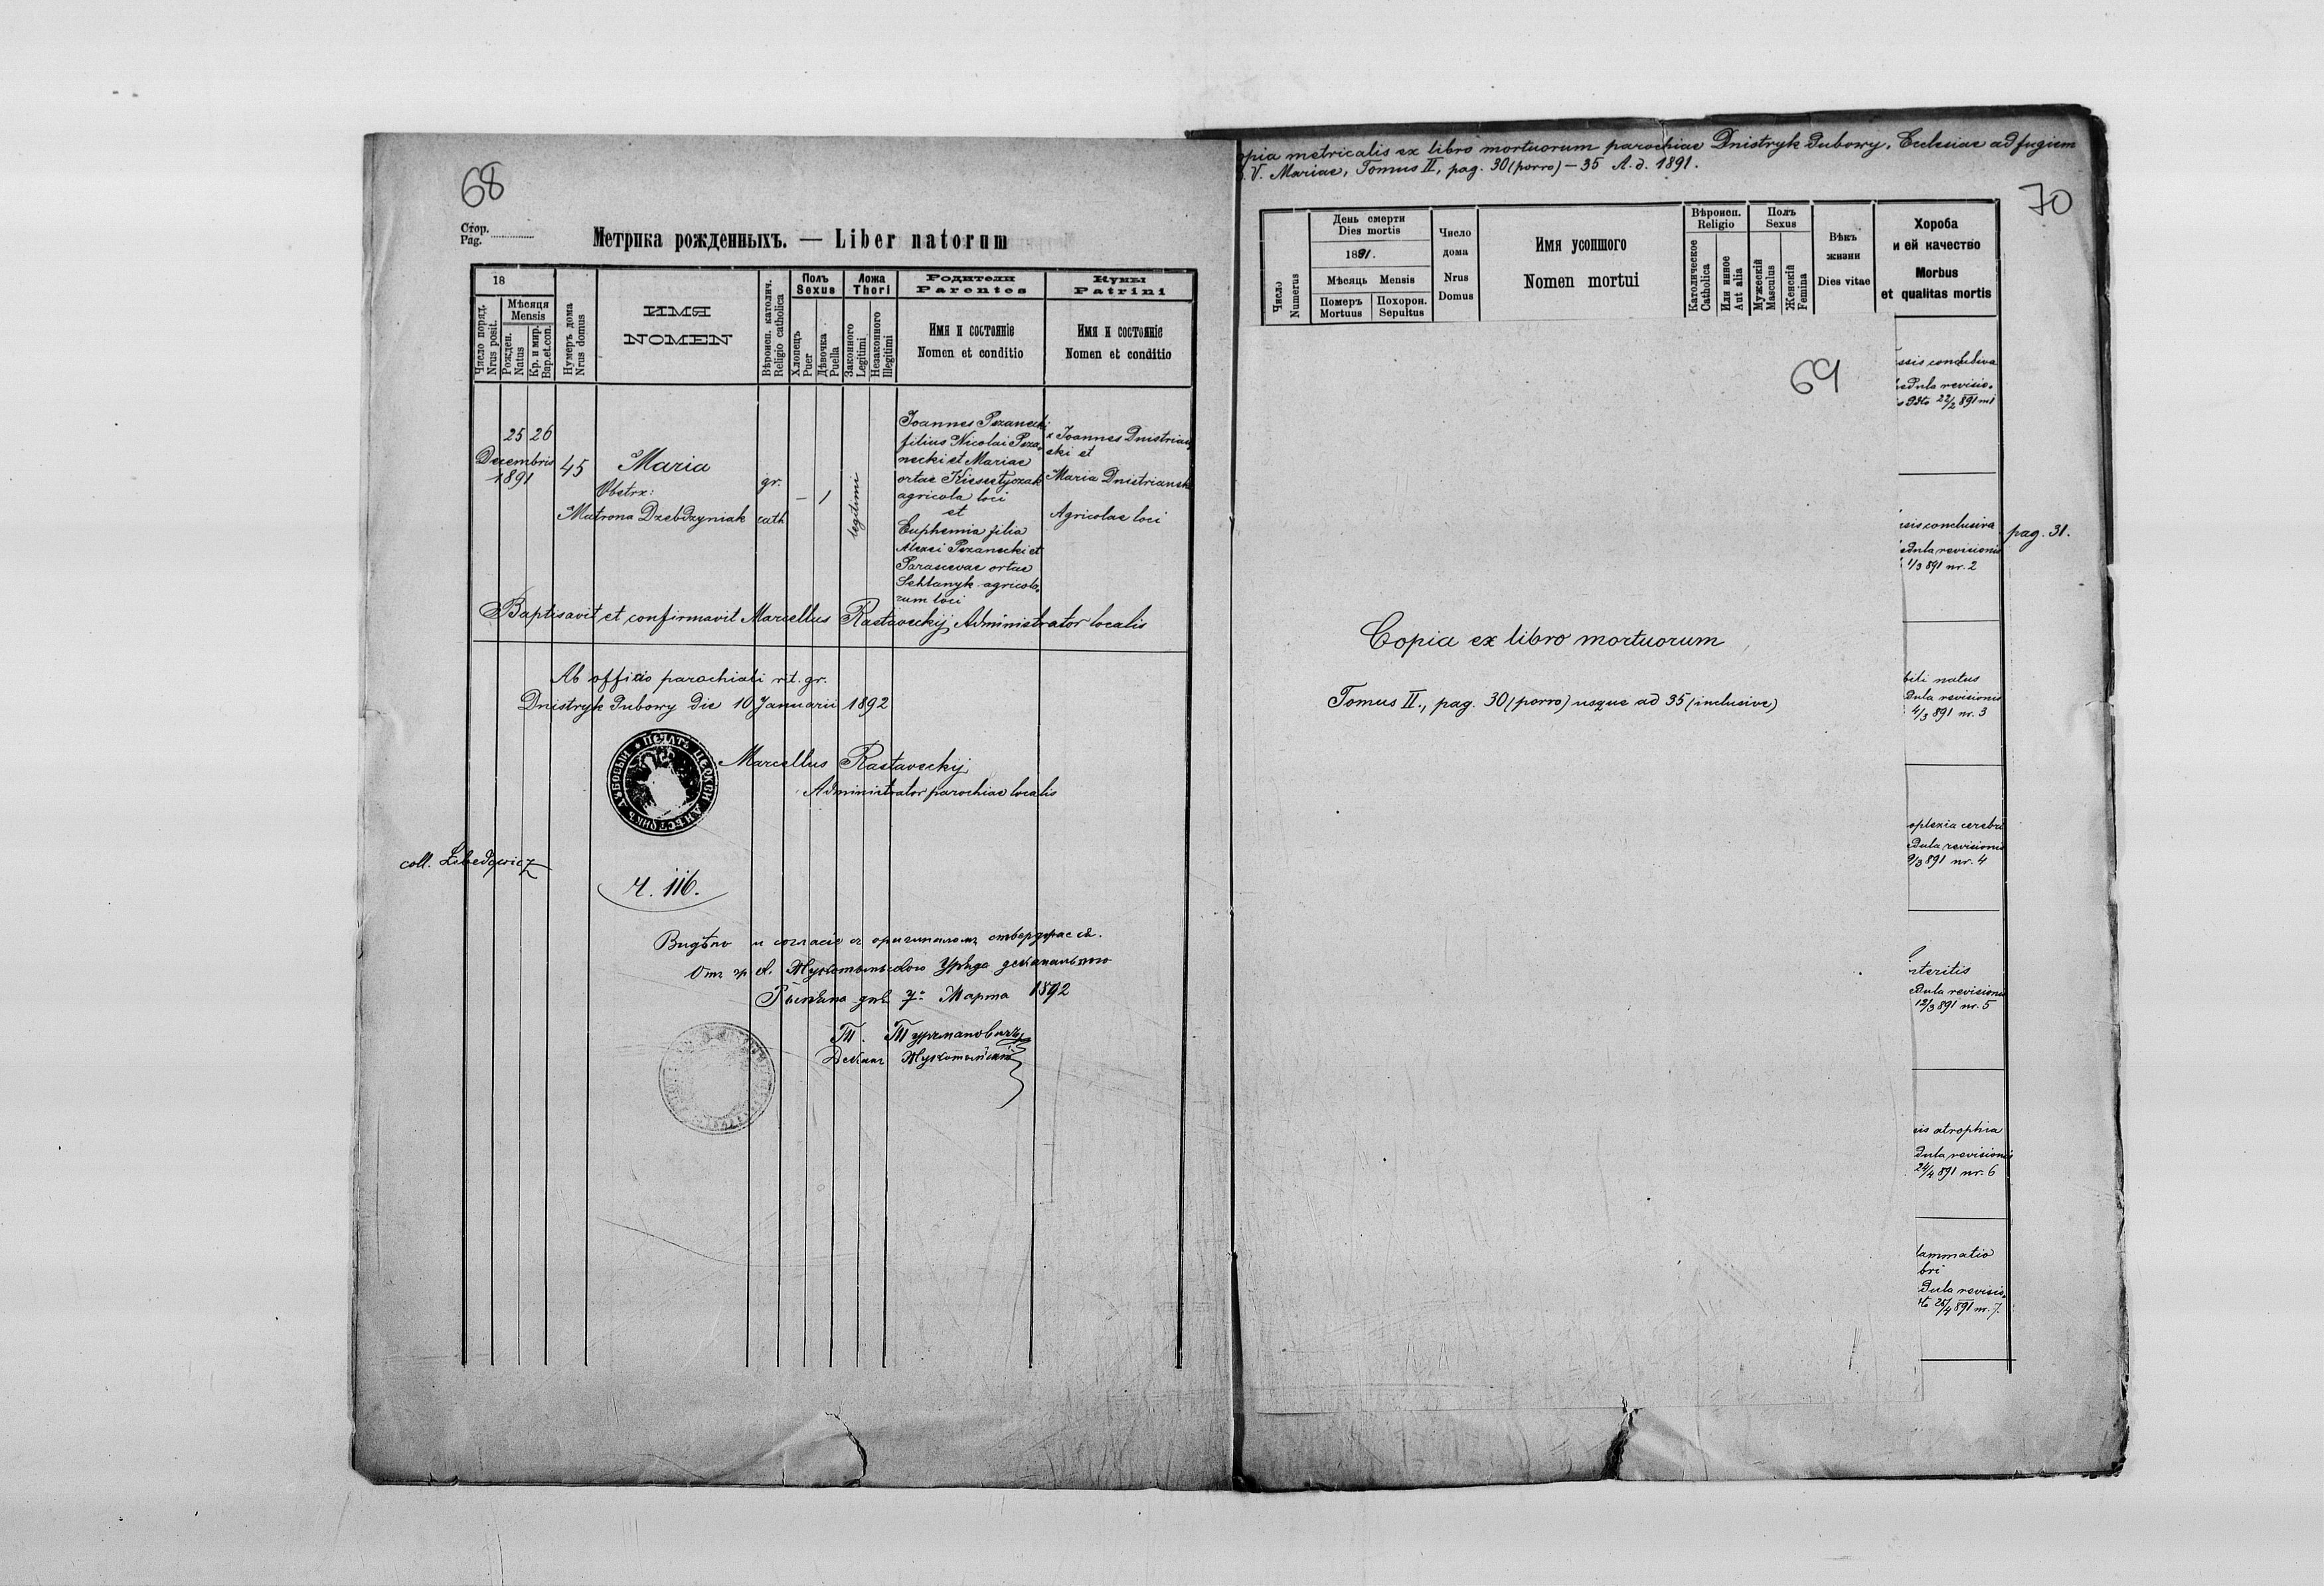 68
Стор.
Pag.
Метрика рожденныхъ. — Liber natorum
18
Число поряд.
Nrus posit.
Мѣсяця
Mensis
Рожден.
Natus
Кр. и мир.
Bap.et.con.
Нумеръ дома
Nrus domus
ИМЯ
NOMEN
Вѣроисп. католич.
Religio catholica
Полъ
Sexus
Хлопецъ
Puer
Дѣвочка
Puella
Ложа
Thori
Законного
Legitimi
Незаконного
Illegitimi
Родители
Parentes
Имя и состояніе
Nomen et conditio
Кумы
Patrini
Имя и состояніе
Nomen et conditio
25 26
Decembris
1891
45
Maria
Obstrx:
Matrona Dzebdzyniak
gr.
cath
— 1
legitimi
Joannes Pezanecki
filius Nicolai Peza-
necki et Mariae
ortae
agricola loci
et
Euphemia filia
Alexei Pezanecki et
Parascevae ortae
Schlanyk agricola-
rum loci
Joannes Dnistrian-
ski et
Maria Dnistrianski
Agricolae loci
Baptisavit et confirmavit Marcellus Rastaveckij Administrator localis
Ab officio parochiali rit. gr.
Dnistryk Dubowy die 10 Januarii 1892
Marcellus Rastaveckij
Administrator parochiae localis
coll.
Ч. 116.
Видѣно и согласіе съ оригиналомъ
Марта 1892
opia metricalis ex libro mortuorum parochiae Dnistryk Dubowy, Eclesiae ad fugiem
. V. Mariae, Tomus II, pag. 30 (porro) — 35 A. d. 1891.
70
Число
Numerus
День смерти
Dies mortis
1891.
Мѣсяць Mensis
Померъ
Mortuus
Похорон.
Sepultus
Число
дома
Nrus
Domus
Имя усопшого
Nomen mortui
Вѣроисп.
Religio
Католическое
Catholica
Или инное
Aut alia
Полъ
Sexus
Мужескій
Masculus
Женскій
Femina
Вѣкъ
жизни
Dies vitae
Хороба
и ей качество
Morbus
et qualitas mortis
69
Copia ex libro mortuorum
Tomus II., pag. 30 (porro) usque ad 35 (inclusive)
ssis conclusiva
edula revisio-
22/2 891 nr 1
ssis conclusiva
edula revisionis
1/3 891 nr. 2
pag. 31.
bili natus
dula revisionis
4/3 891 nr. 3
oplexia cerebri
edula revisionis
9/3 891 nr. 4
teritis
edula revisionis
12/3 891 nr. 5
sis atrophia
dula revisionis
24/4 891 nr. 6
lammatio
bri
dula revisio-
26/4 891 nr. 7.